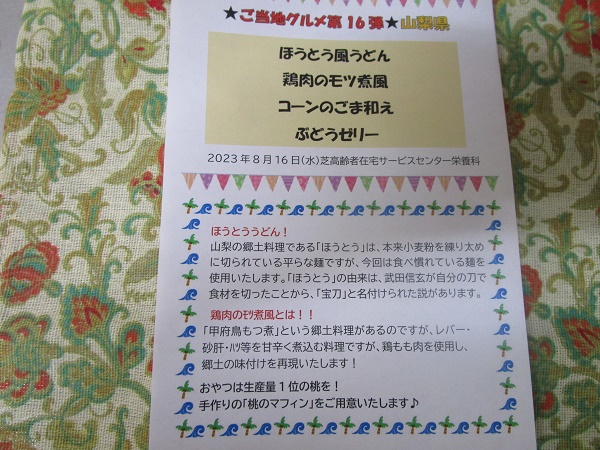 ★ご当地グルメ第16弾★山梨県
ほうとう風うどん
鶏肉のモツ煮風
コーンのごま和え
ぶどうゼリー
2023年8月16日(水)芝高齢者在宅サービスセンター栄養科
ほうとううどん！
山梨の郷土料理である「ほうとう」は、本来小麦粉を練り太め
に切られている平らな麺ですが、今回は食べ慣れている麺を
使用いたします。「ほうとう」の由来は、武田信玄が自分の刀で
食材を切ったことから、「宝刀」と名付けられた説があります。
鶏肉のﾓﾂ煮風とは！！
「甲府鳥もつ煮」という郷土料理があるのですが、レバー・
砂肝・ﾊﾂ等を甘辛く煮込む料理ですが、鶏もも肉を使用し、
郷土の味付けを再現いたします！
おやつは生産量１位の桃を！
手作りの「桃のマフィン」をご用意いたします♪